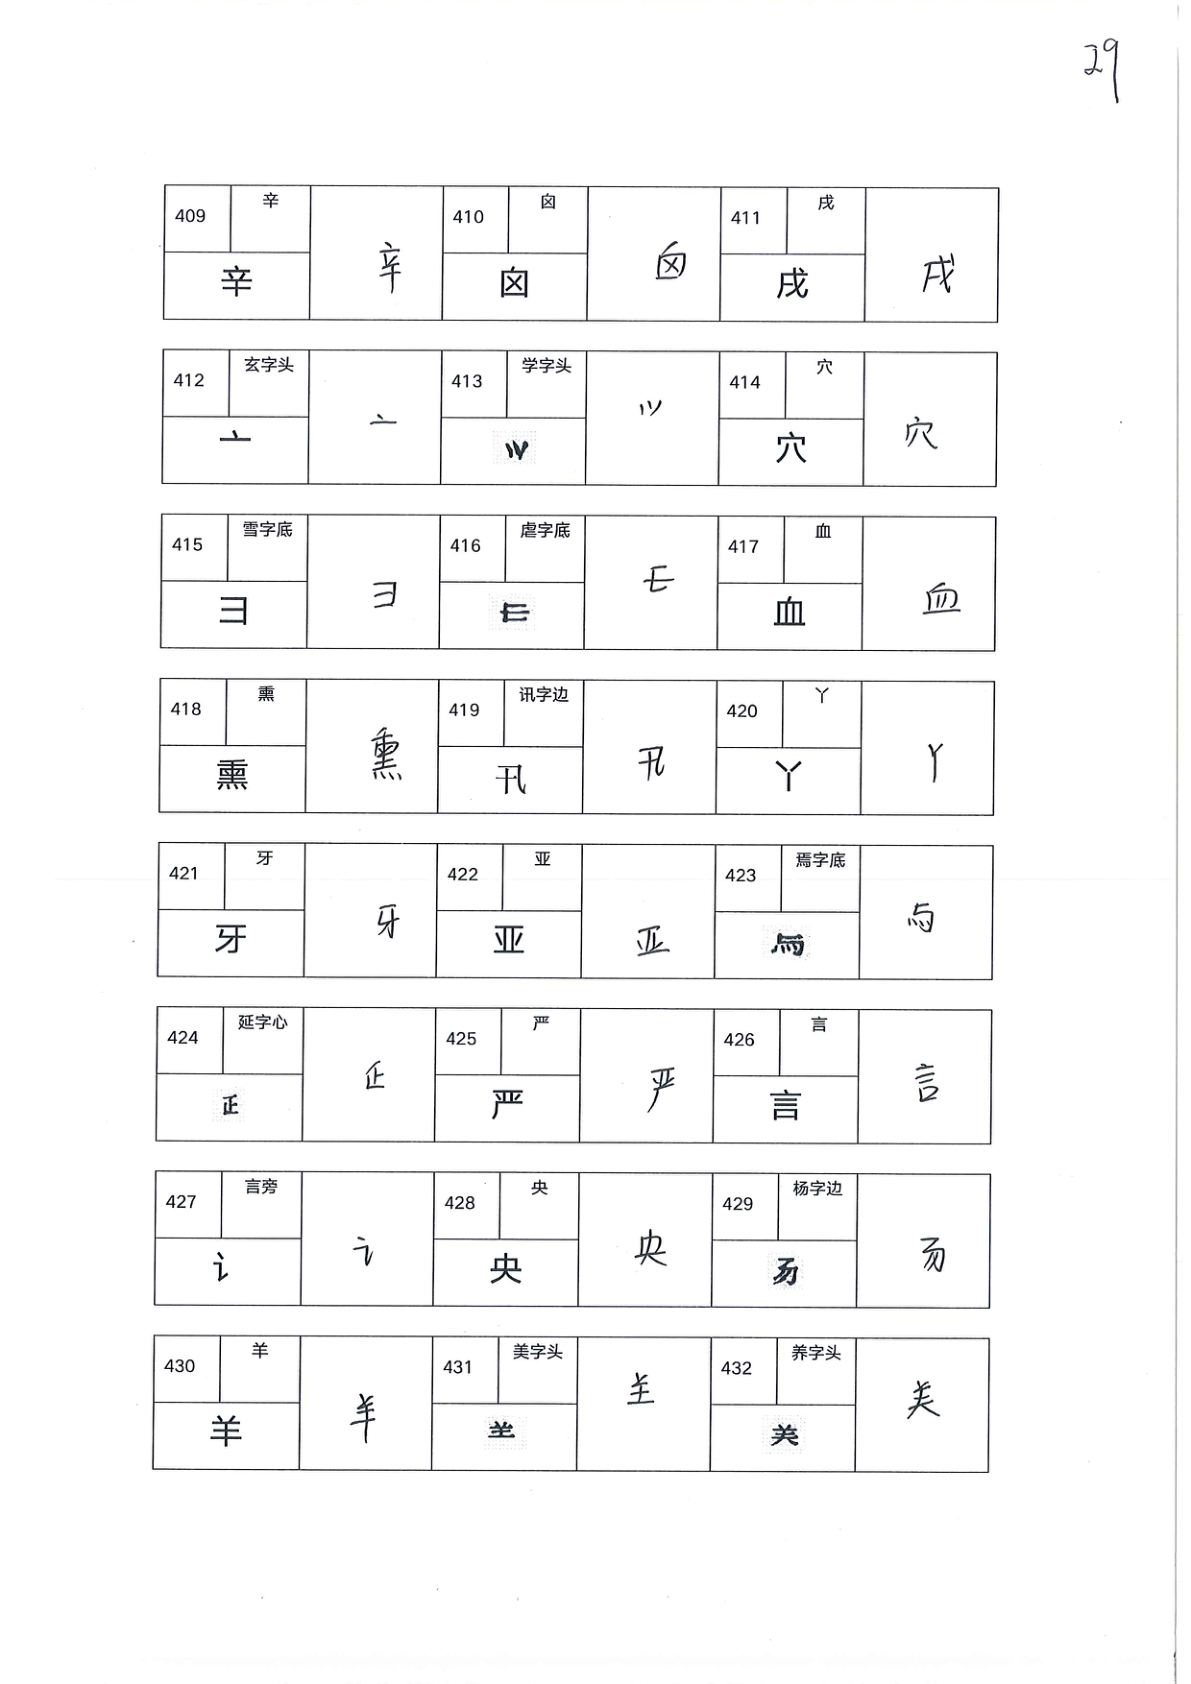 29
409 辛 辛 辛 410 囟 囟 囟 411 戌 戌 戌
412 玄字头 亠 亠 413 学字头 414 穴 穴 穴
415 雪字底 彐 彐 416 虐字底 417 血 血 血
418 熏 熏 熏 419 讯字边 卂 卂 420 丫 丫 丫
421 牙 牙 牙 422 亚 亚 亚 423 焉字底
424 延字心 425 严 严 严 426 言 言 言
427 言旁 讠 讠 428 央 央 央 429 杨字边
430 羊 羊 羊 431 美字头 432 养字头